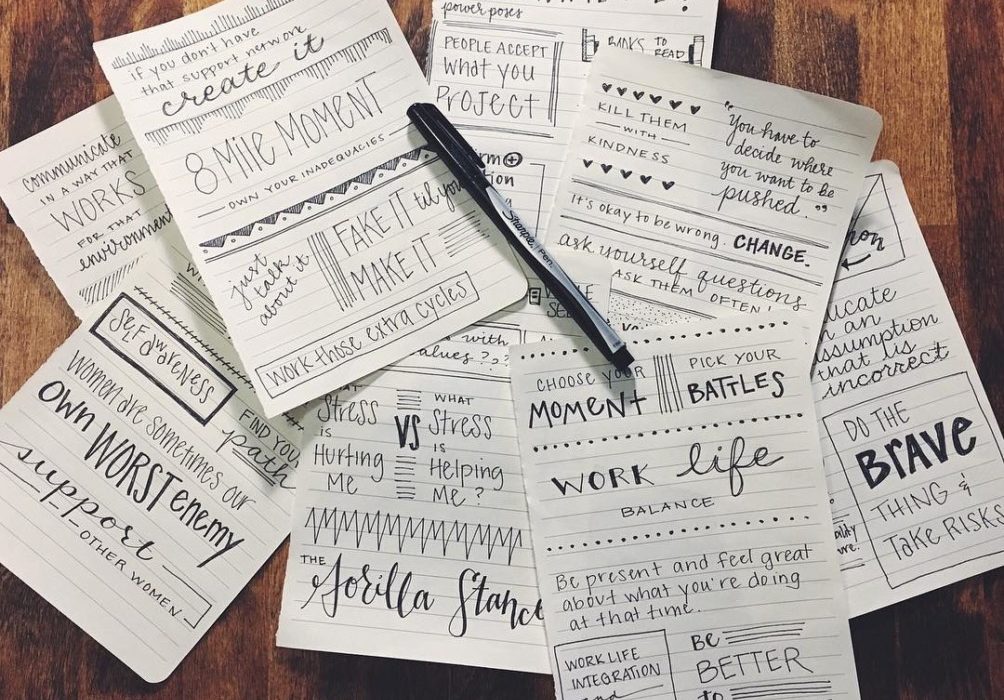 if you don't have
that support network
create it
8 Mile MOMENT
OWN YOUR INADEQUACIES
just
talk
about it
FAKE IT til you
MAKE IT
Work those extra cycles
communicate
IN A WAY THAT
WORKS
FOR THAT
environment
power poses
PEOPLE ACCEPT
What you
PROJECT
BOOKS TO
READ
KILL THEM
WITH
KINDNESS
"You have to
decide where
you want to be
pushed."
It's okay to be wrong. CHANGE.
ask yourself questions
ASK THEM OFTEN
Sharpie. Pen
SELF AWARENESS
Women are sometimes our
OWN WORST enemy
support
OTHER WOMEN
FIND YOUR
path
with
values ???
Stress
is
Hurting
Me
VS
WHAT
Stress
is
Helping
Me?
THE
Gorilla Stance
CHOOSE YOUR
MOMENT
PICK YOUR
BATTLES
WORK life
BALANCE
Be present and feel great
about what you're doing
at that time.
WORK LIFE
INTEGRATION
and
BE
BETTER
to
an
assumption
that is
incorrect
DO THE
BRAVE
THING &
Take RISKS